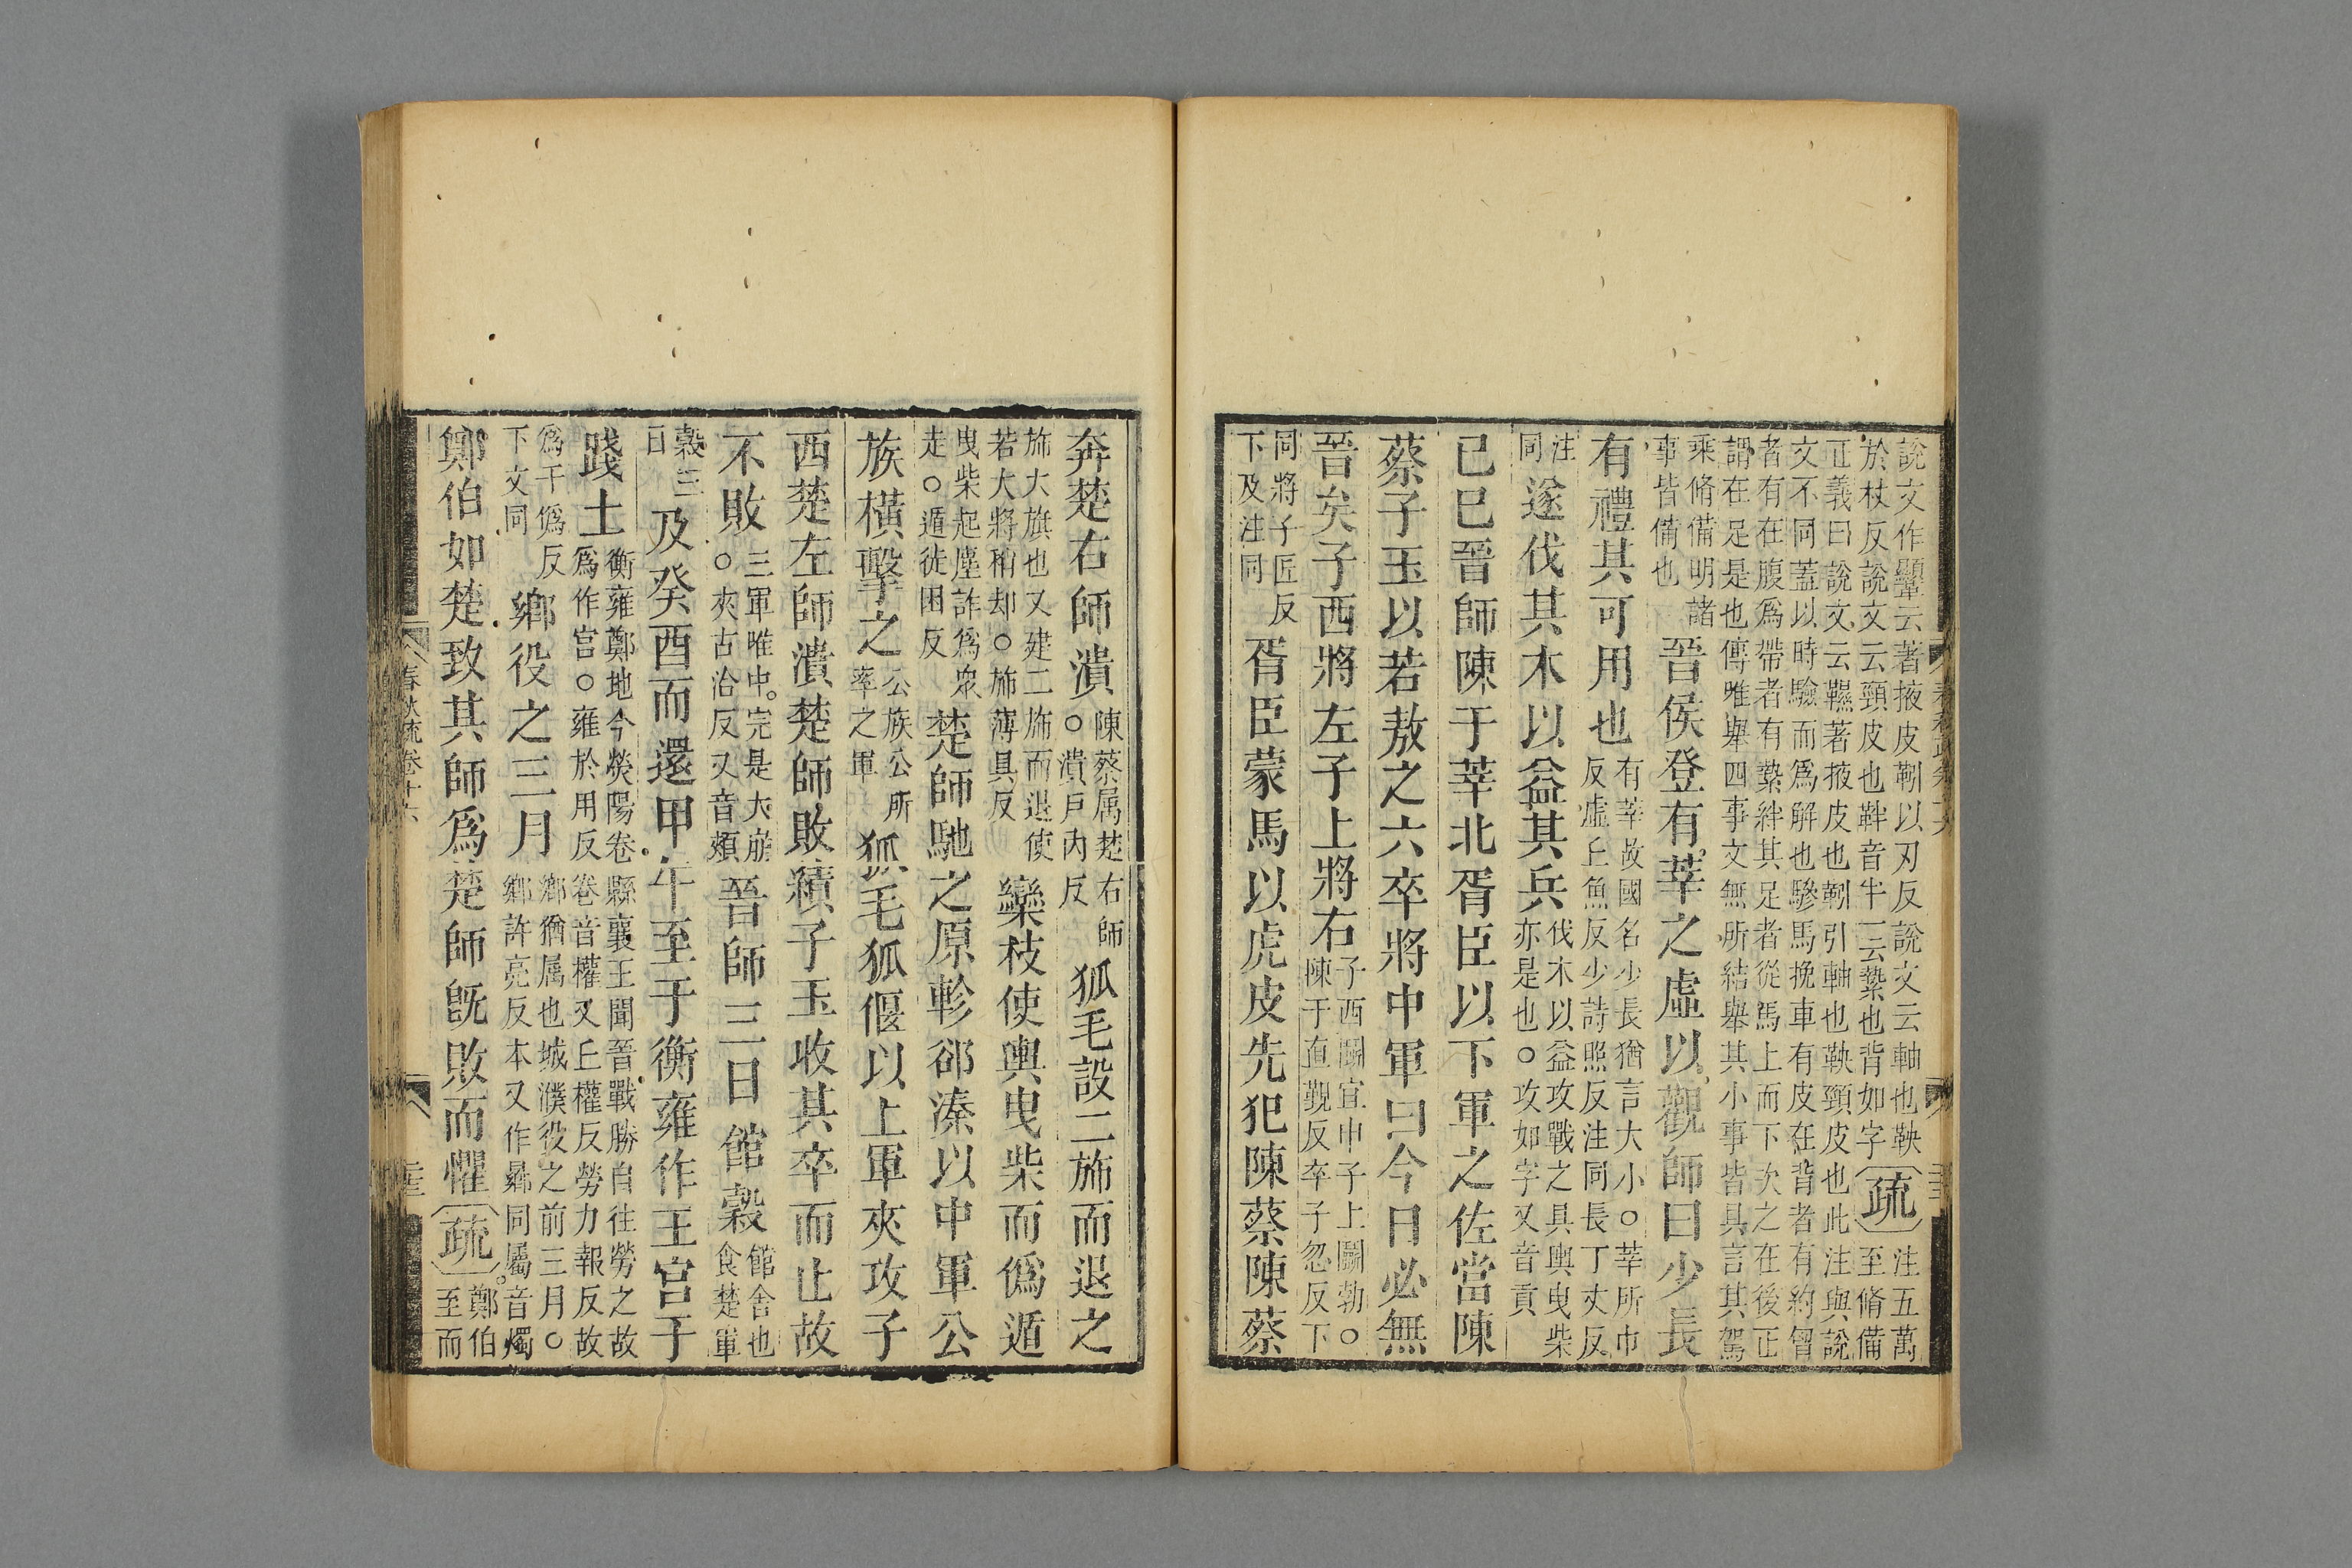 說文作韅云著掖皮靷以刃反說文云軸也鞅
於杖反說文云頸皮也靽音半一云縶也背如字
疏
注五萬
至脩備
正義曰說文云韅著掖皮也靷引軸也鞅頸皮也此注與說
文不同蓋以時驗而爲解也驂馬挽車有皮在背者有約胷
者有在腹爲帶者有縶絆其足者從馬上而下次之在後正
謂在足是也傳唯舉四事文無所結舉其小事皆具言其駕
乘脩備明諸
事皆備也
晉侯登有莘之虛以觀師曰少長
有禮其可用也
有莘故國名少長猶言大小○莘所巾
反虛丘魚反少詩照反注同長丁丈反
注
同
遂伐其木以益其兵
伐木以益攻戰之具輿曳柴
亦是也○攻如字又音貢
已巳晉師陳于莘北胥臣以下軍之佐當陳
蔡子玉以若敖之六卒將中軍曰今日必無
晉矣子西將左子上將右
子西鬬宜申子上鬬勃○
陳于直覲反卒子忽反下
同將子匠反
下及注同
胥臣蒙馬以虎皮先犯陳蔡陳蔡
奔楚右師潰
陳蔡属楚右師
○潰戸内反
狐毛設二旆而退之
旆大旗也又建二旆而退使
若大將稍却○旆薄具反
欒枝使輿曳柴而僞遁
曳柴起塵詐爲衆
走○遁徒困反
楚師馳之原軫郤溱以中軍公
族橫擊之
公族公所
率之軍
狐毛狐偃以上軍夾攻子
西楚左師潰楚師敗績子玉收其卒而止故
不敗
三軍唯中完是大崩
○夾古洽反又音頰
晉師三日館穀
館舍也
食楚軍
榖三
日
及癸酉而還甲午至于衡雍作王宫于
踐土
衡雍鄭地今熒陽卷縣襄王聞晉戰勝自往勞之故
爲作宫○雍於用反卷音權又丘權反勞力報反故
爲于僞反
下文同
鄉役之三月
鄉猶属也城濮役之前三月○
鄉許亮反本又作曏同屬音燭
鄭伯如楚致其師爲楚師旣敗而懼
疏
鄭伯
至而
春秋疏卷十六